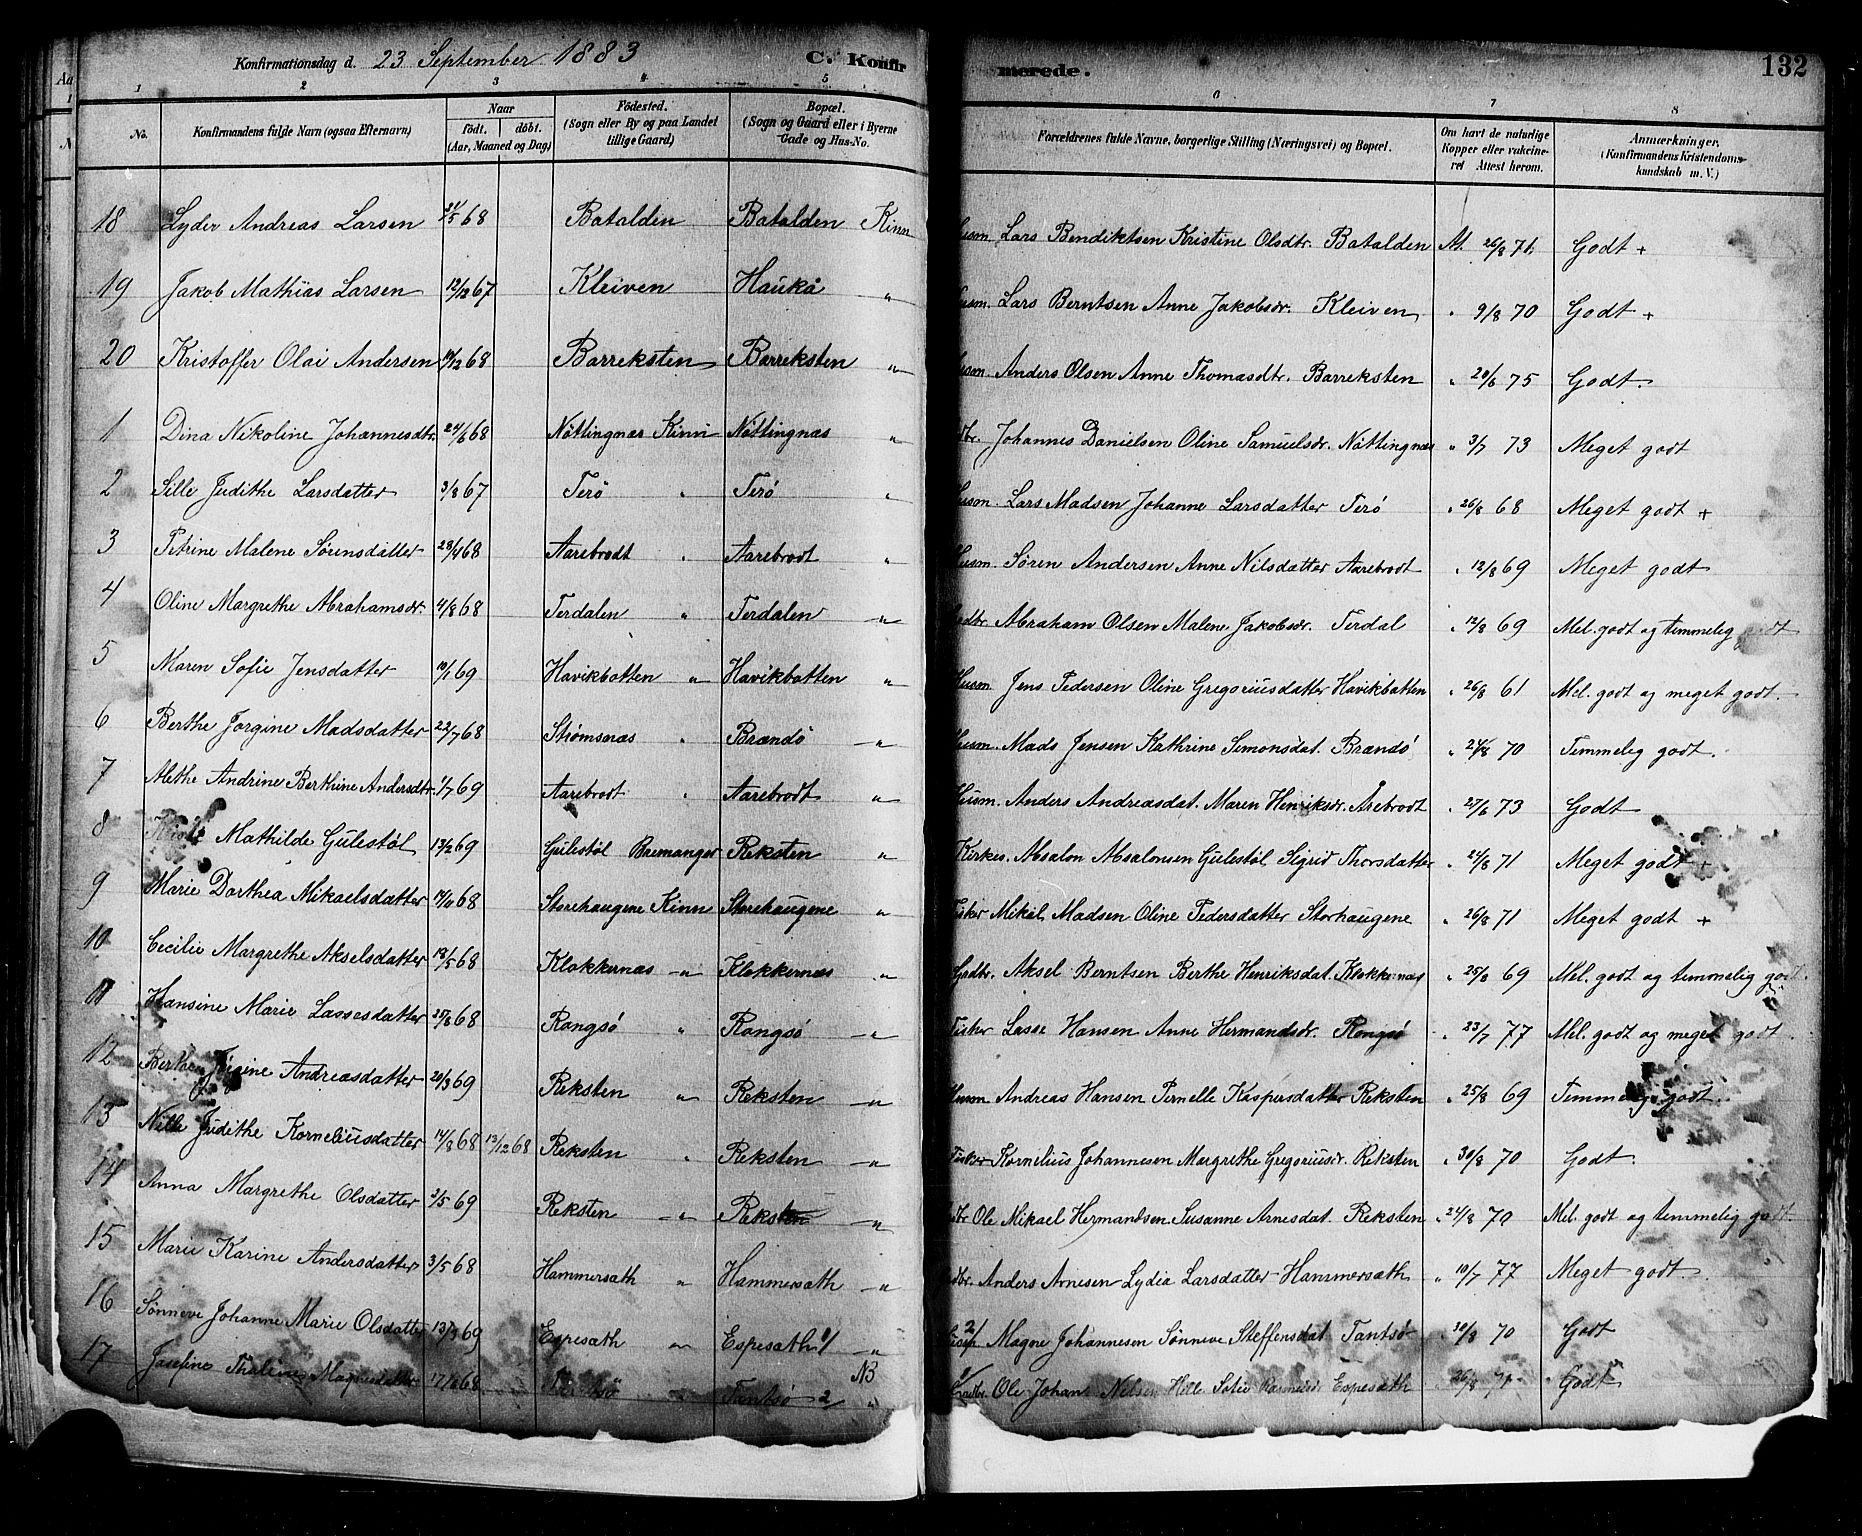 Konfirmationsdag d. 23 September 1883 C. Konfirmerede. 132
1 2 3 4 5 6 7 8
No. Konfirmandens fulde Navn (ogsaa Efternavn) Naar født. døbt. (Aar, Maaned og Dag) Fødested. (Sogn eller By og paa Landet tillige Gaard) Bopæl. (Sogn og Gaard eller i Byerne Gade og Hus-No. Forældrenes fulde Navne, borgerlige Stilling (Næringsvei) og Bopæl. Om havt de naturlige Kopper eller vakcineret Attest herom. Anmærkninger. (Konfirmandens Kristendomskundskab m. V.)
18 Lyder Andreas Larsen 21/5 68 Batalden Batalden Kinn Husm. Lars Bendiktsen Kristine Olsdtr. Batalden At. 26/8 71 Godt +
19 Jakob Mathias Larsen 12/12 67 Kleiven Haukå " Husm. Lars Berntsen Anne Jakobsdr. Kleiven " 9/8 70 Godt +
20 Kristoffer Olai Andersen /12 68 Barreksten Barreksten " Husm. Anders Olsen Anne Thomasdtr. Barreksten " 20/6 75 Godt.
1 Dina Nikoline Johannesdtr. 24/6 68 Nøttingnæs Kinn Nøttingnæs " Johannes Danielsen Oline Samuelsdr. Nøttingnæs " 3/7 73 Meget godt
2 Sille Judithe Larsdatter 3/8 67 Terø " Terø " Husm. Lars Madsen Johanne Larsdatter Terø " 26/8 68 Meget godt +
3 Petrine Malene Sørensdatter 28/4 68 Aarebrodt " Aarebrodt " Husm. Søren Andersen Anne Nilsdatter Aarebrodt " 12/8 69 Meget godt
4 Oline Margrethe Abrahamsdr. 4/8 68 Terdalen " Terdalen " Abraham Olsen Malene Jakobsdr. Terdal " 12/8 69 Mel. godt og temmelig godt
5 Maren Sofie Jensdatter 10/1 69 Havikbotten " Havikbotten " Husm Jens Pedersen Oline Gregoriusdatter Havikbotten " 26/8 61 Mel. godt og meget godt.
6 Berthe Jorgine Madsdatter 22/7 68 Strømsnæs " Brandø " Husm. Mads Jensen Kathrine Simonsdat. Brandø " 24/8 70 Temmelig godt.
7 Alethe Andrine Berthine Andersdtr. 1/7 69 Aarebrodt " Aarebrodt " Husm. Anders Andreasdat. Maren Henriksdr. Årebrodt " 27/6 73 Godt
8 Mathilde Gulestøl 13/2 69 Gulestøl Bremanger Reksten " Kirkes. Absalon Absalonsen Gulestøl Sigrid Thorsdatter " 24/8 71 Meget godt +
9 Marie Dorthea Mikaelsdatter 68 Storehaugene Kinn Storehaugene " Fisker Mikal Madsen Oline Pedersdatter Storhaugene " 26/8 71 Meget godt +
10 Cecilie Margrethe Akselsdatter 18/5 68 Klokkernæs " Klokkernæs " Grdbr. Aksel Berntsen Berthe Henriksdat. Klokkernæs " 25/8 69 Mel. godt og temmelig godt.
11 Hansine Marie Lassesdatter 25/8 68 Rongsø " Rongsø " Fisker Lasse Hansen Anne Hermandsdr. Rongsø " 23/7 77 Mel. godt og meget godt
12 Berthe Jørgine Andreasdatter 20/3 69 Reksten " Reksten " Husm Andreas Hansen Pernelle Kaspersdatter Reksten " 25/8 69 Temmelig godt.
13 Nille Judithe Korneliusdatter 14/8 68 13/12 68 Reksten " Reksten " Fisker Kornelius Johannesen Margrethe Gregoriusdr. Reksten " 30/8 70 Godt.
14 Anna Margrethe Olsdatter 2/5 69 Reksten " Reksten " Ole Mikael Hermandsen Susanne Arnesdat. Reksten " 24/8 70 Mel. godt og temmelig godt.
15 Marie Karine Andersdatter 3/5 68 Hammersæth " Hammersæth " Anders Arnesen Lydia Larsdatter Hammersæth " 10/7 77 Meget godt.
16 Sønneve Johanne Marie Olsdatter 13/3 69 Espesæth " Espesæth 1/ " 2/ Magne Johannesen Sønneve Steffensdat Tantsø " 30/8 70 Godt
17 Josefine Thaline Magnesdatter 68 " Tantsø 2 NB " 1/ Ole Johan Nilsen Sofie Espesæth " 26/8 71 Godt